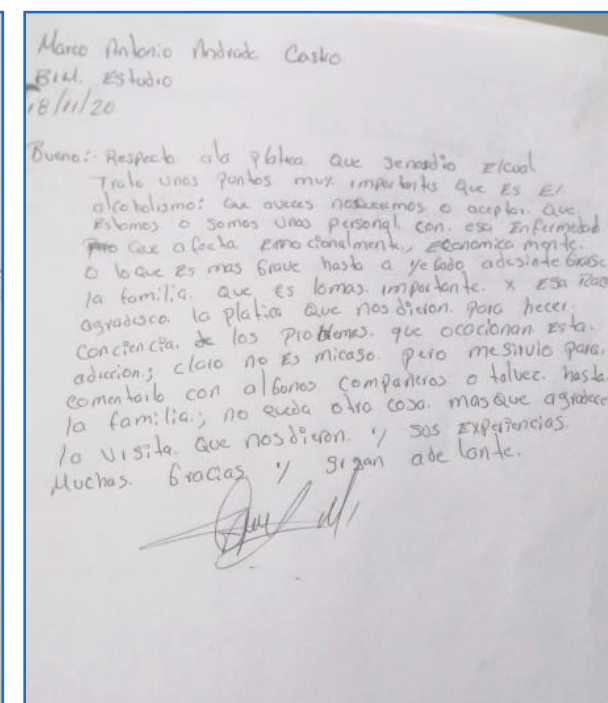 Marco Antonio Andrade Castro
BIM. Estudio
18/11/20
Bueno: Respecto ala platica que senosdio elcual
Trato unos pontos muy importantes que Es El
alcoholismo: que aveces no queremos o aceptar que
Estamos o somos unas personal con esa Enfermedad
que afecta Emocionalmente, Economica mente.
O loque Es mas Grave hasta a yegado adesinte Grarse
la familia. que es lomas importante. x Esa Razo
agradisco la platica que nos dieron para hecer
conciencia. de los Problemas. que ococionan Esta.
adiccion; claro no Es micaso pero mesirvio para.
comentarlo con algonos compañeros o talvez hasta
la familia.; no queda otra cosa. masque agradece
la visita. que nos dieron. y sos Experiencias.
Muchas. Gracias y sigan ade lante.